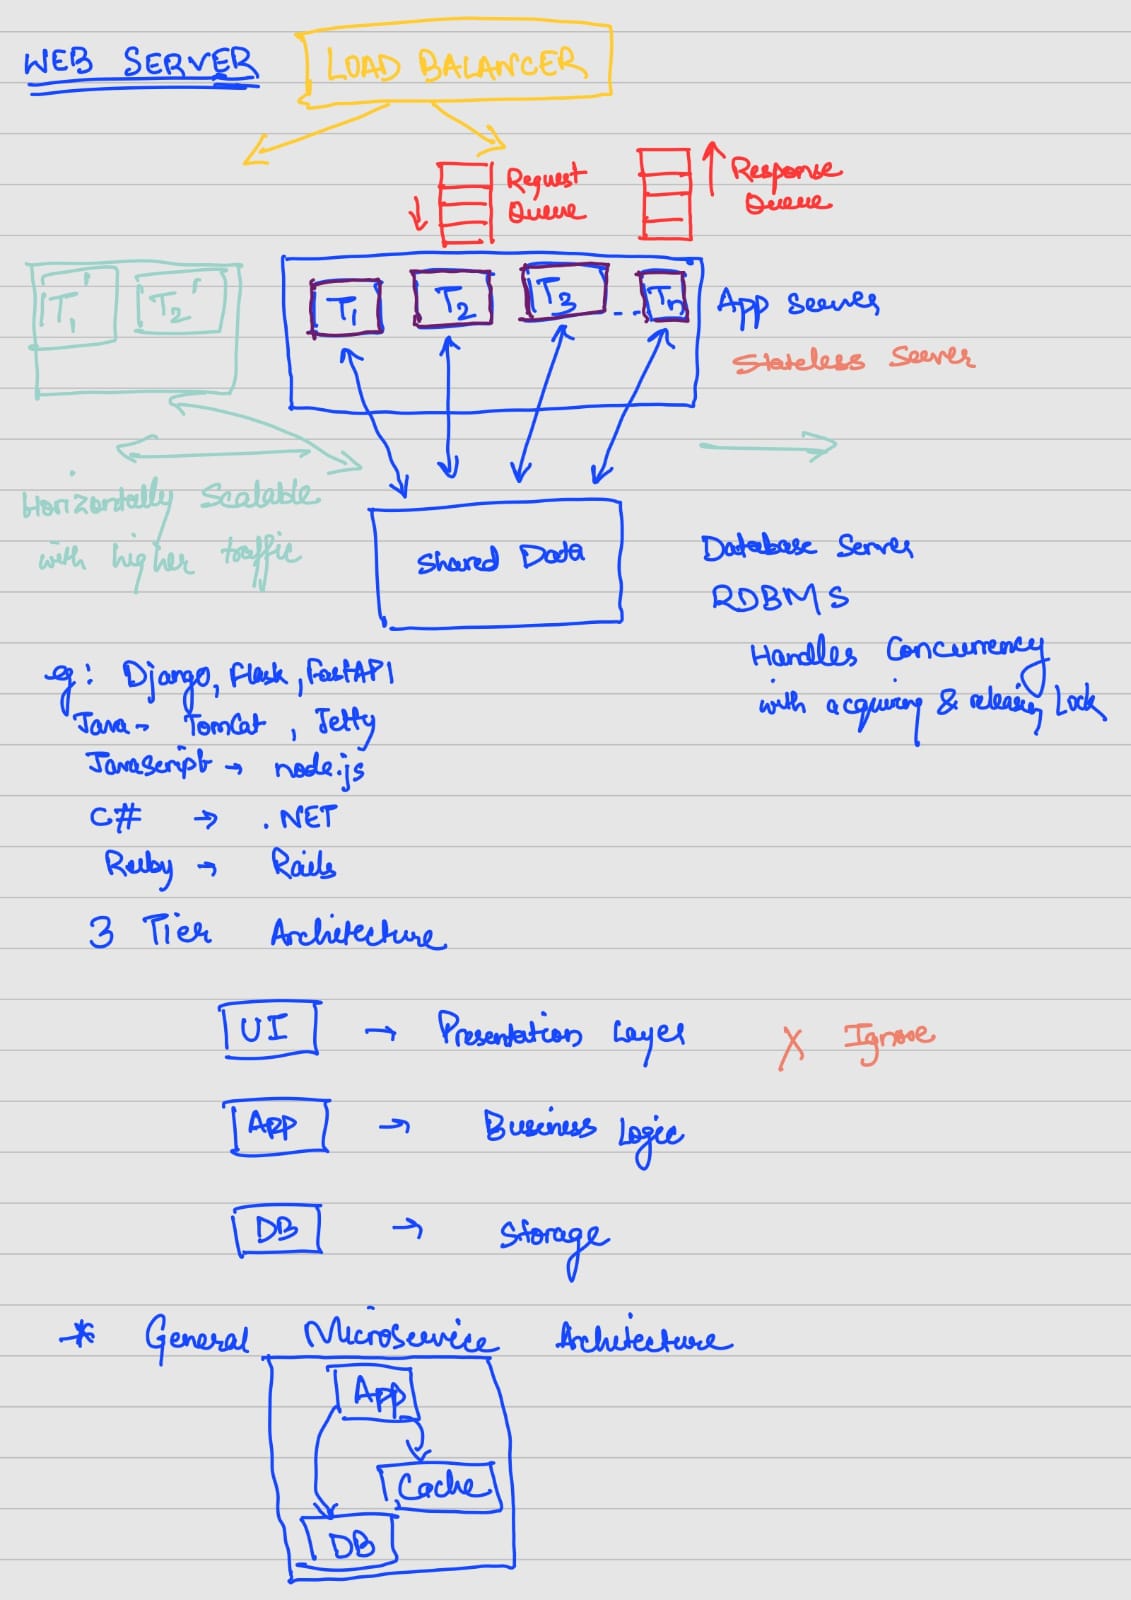 WEB SERVER
LOAD BALANCER
Request
Queue
Response
Queue
T1' T2'
T1 T2 T3 ... Tn
App Server
Stateless Server
Horizontally Scalable
with higher traffic
Shared Data
Database Server
RDBMS
Handles Concurrency
with acquiring & releasing Lock
eg: Django, Flask, FastAPI
Java - Tomcat, Jetty
Javascript → node.js
C# → .NET
Ruby → Rails
3 Tier Architecture
UI → Presentation Layer X Ignore
App → Business Logic
DB → Storage
* General Microservice Architecture
App
Cache
DB